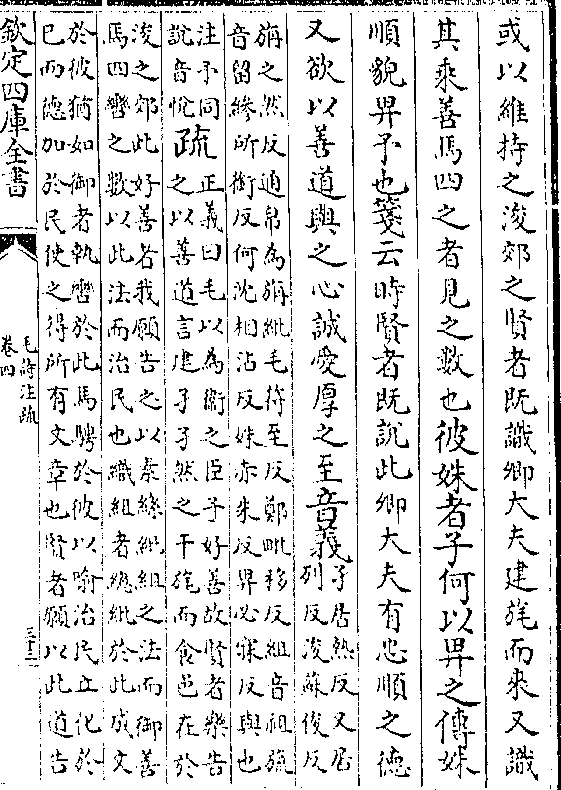 或以維持之浚郊之賢者既識卿大夫建旄而來又識
其乘善馬四之者見之數也彼姝者子何以畀之傳姝
順貌畀予也箋云時賢者既說此卿大夫有忠順之德
又欲以善道與之心誠愛厚之至音義孑居熱反又居
列反浚蘇俊反
旃之然反通帛為旃紕毛符至反鄭毗移反組音祖旒
音留縿所銜反何沈相沾反姝赤朱反畀必寐反與也
注予同
說音悅疏正義曰毛以為衞之臣子好善故賢者樂告
之以善道言建孑孑然之干旄而食邑在於
浚之郊此好善者我願告之以素絲紕組之法而御善
馬四轡之數以此法而治民也織組者總紕於此成文
於彼猶如御者執轡於此馬騁於彼以喻治民立化於
已而德加於民使之得所有文章也賢者願以此道告
欽定四庫全書
毛詩注疏
卷四
三十三